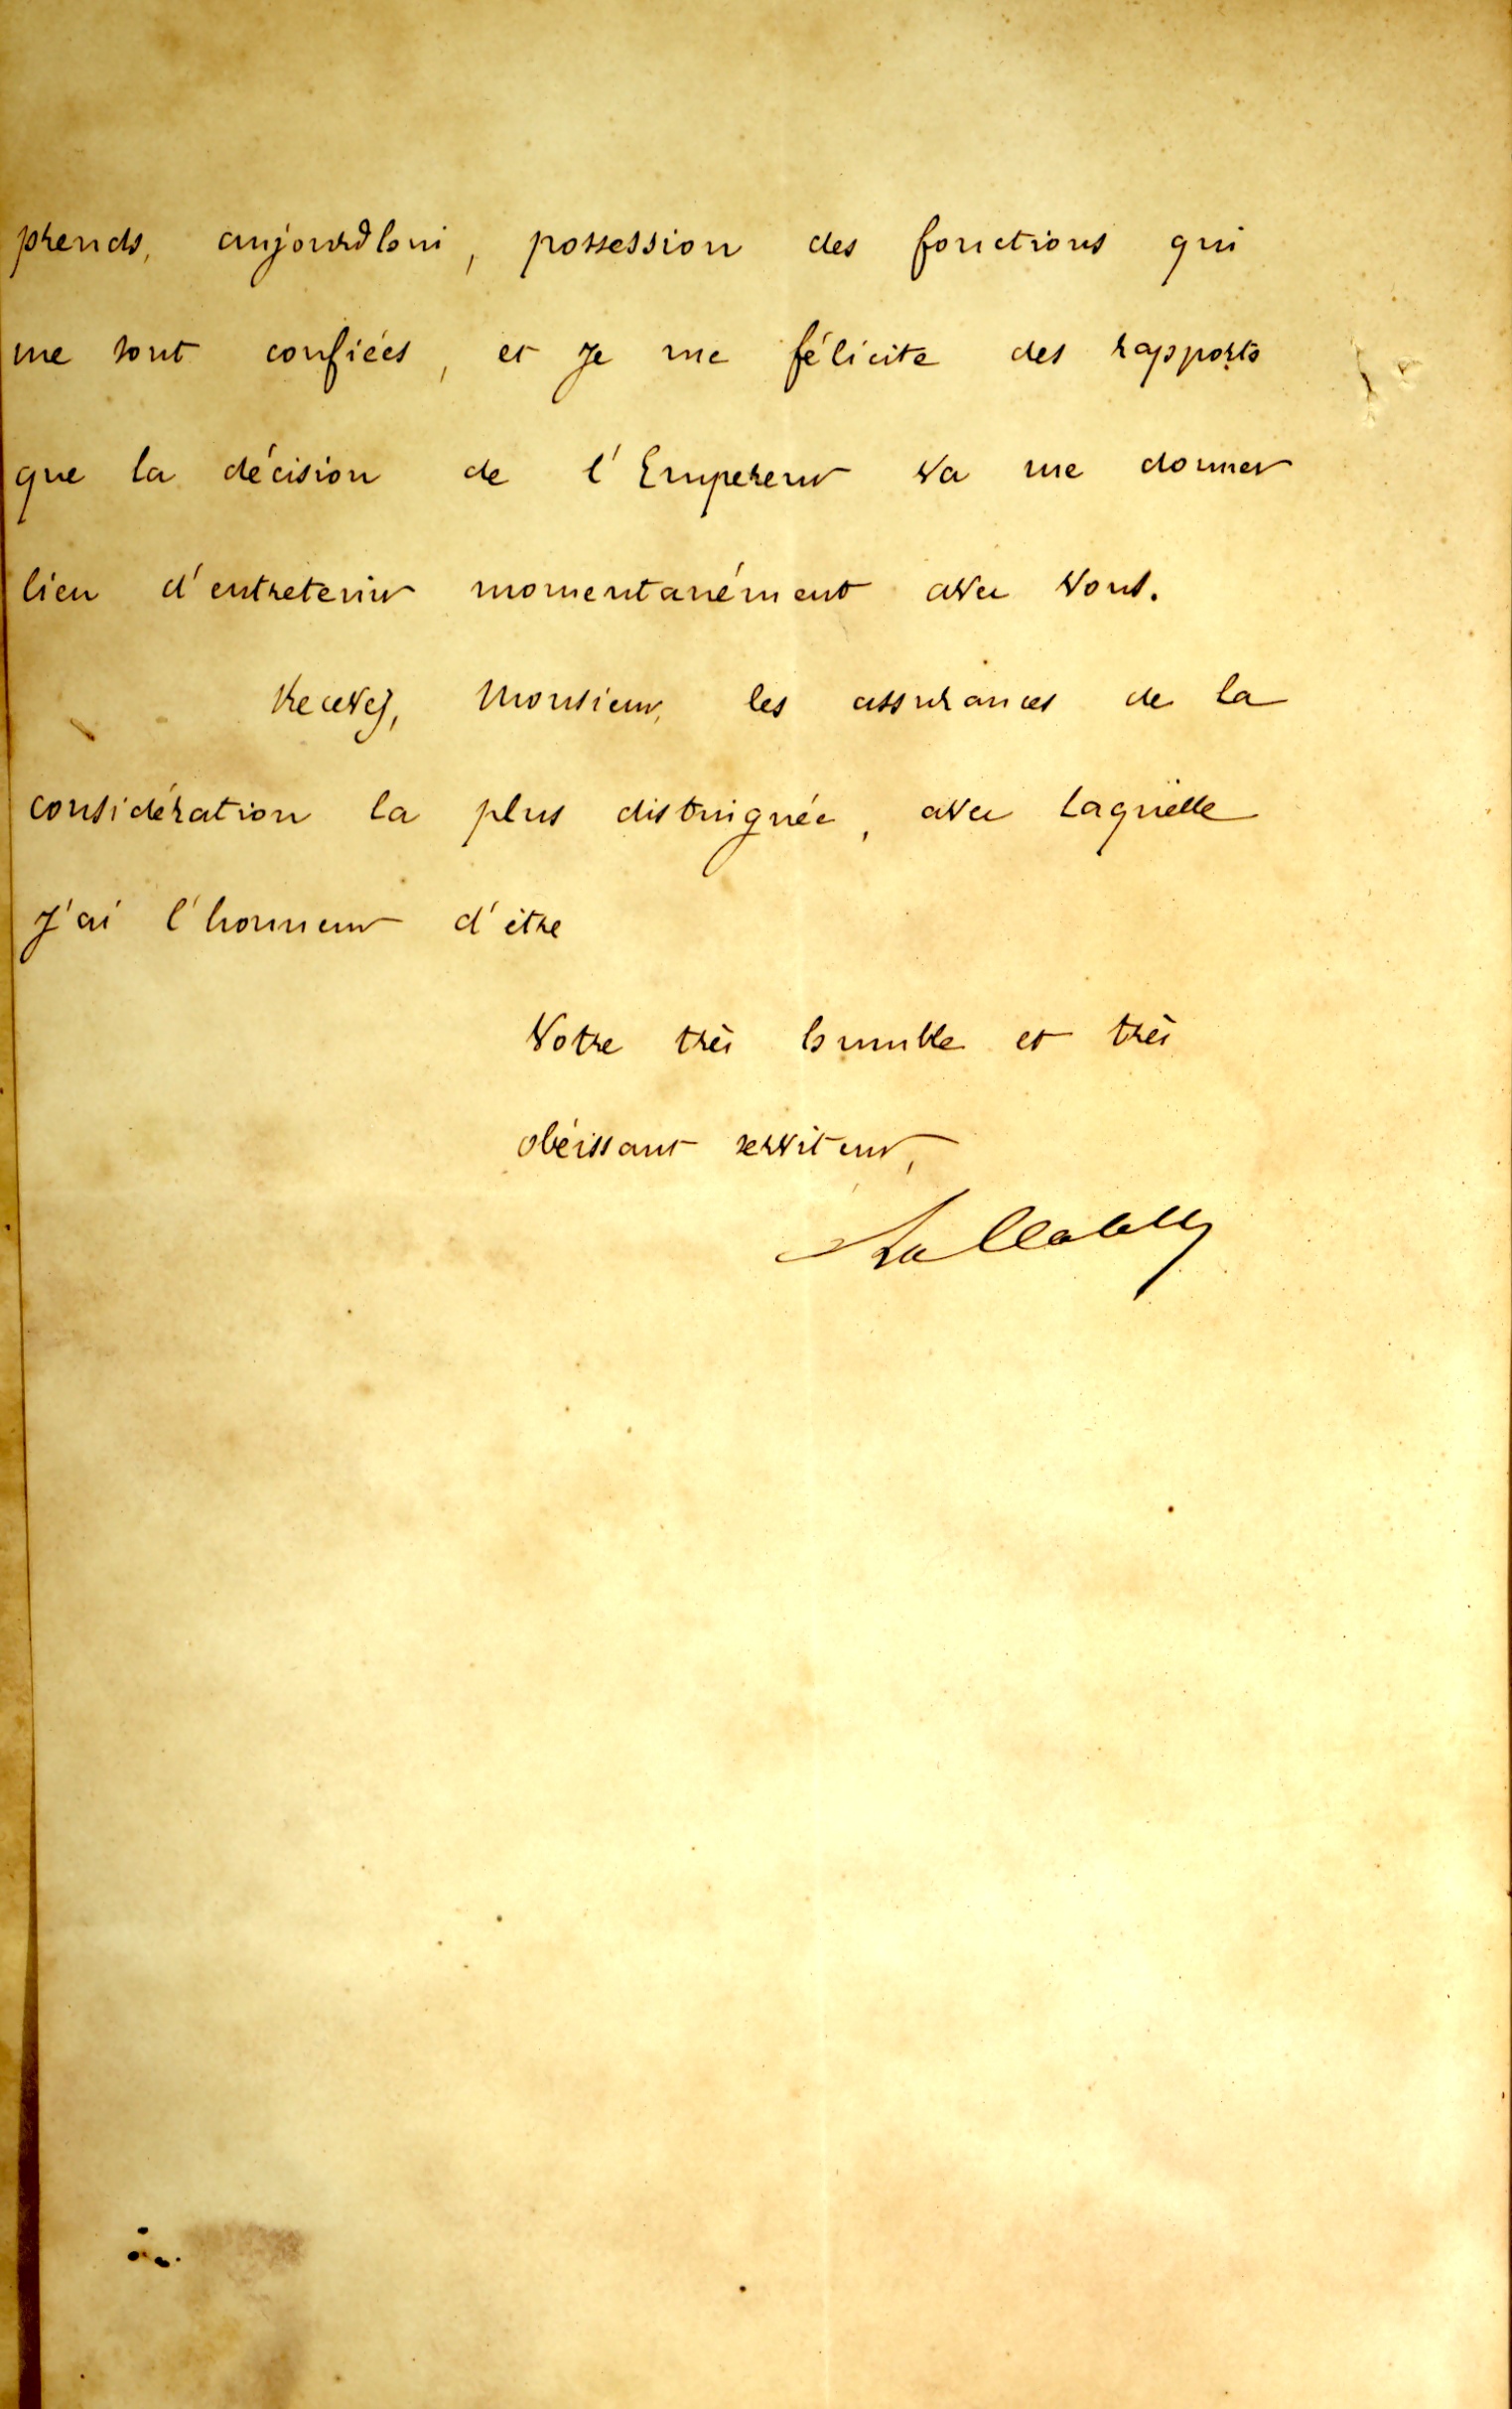 prends, aujourd'hui, possession des fonctions qui
me sont confiées, et je me félicite des rapports
que la décision de l'Empereur va me donner
lieu d'entretenir momentanément avec vous.
Recevez, Monsieur, les assurances de la
considération la plus distinguée, avec laquelle
j'ai l'honneur d'être
Votre très humble et très
obéissant serviteur,